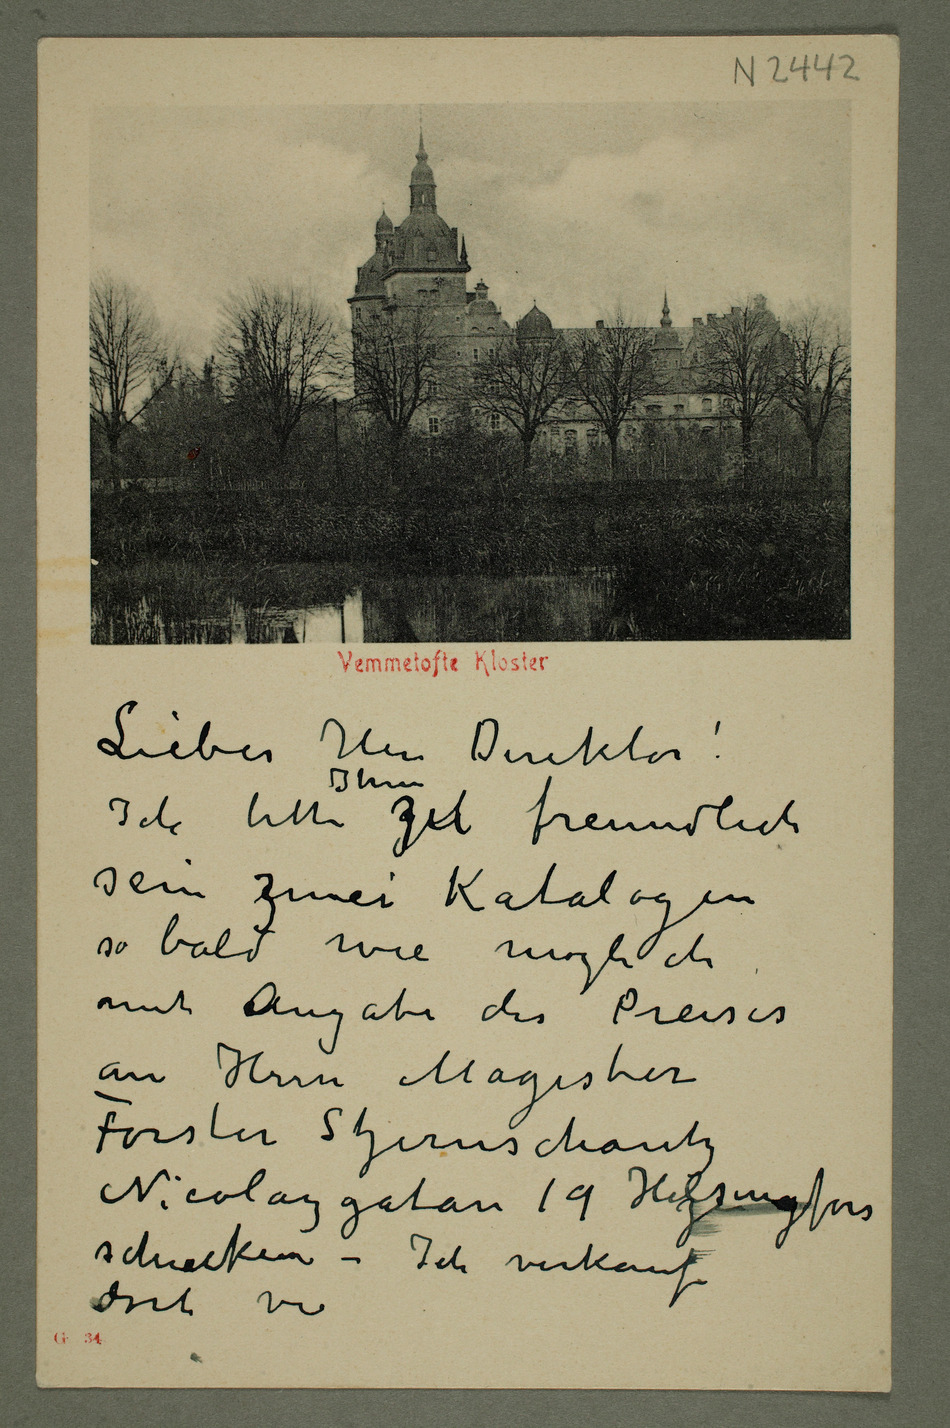 N 2442
Vemmetofte Kloster
Lieber Herr Direktor!
Ihnen
Ich bitte freundlich
sein zwei Katalogen
so bald wie möglich
mit Angabe des Preises
an Herrn Magister
Förster Stjernschantz
Nicolaygatan 19 Helsingfors
schicken – Ich verkaufe
dort
G 34